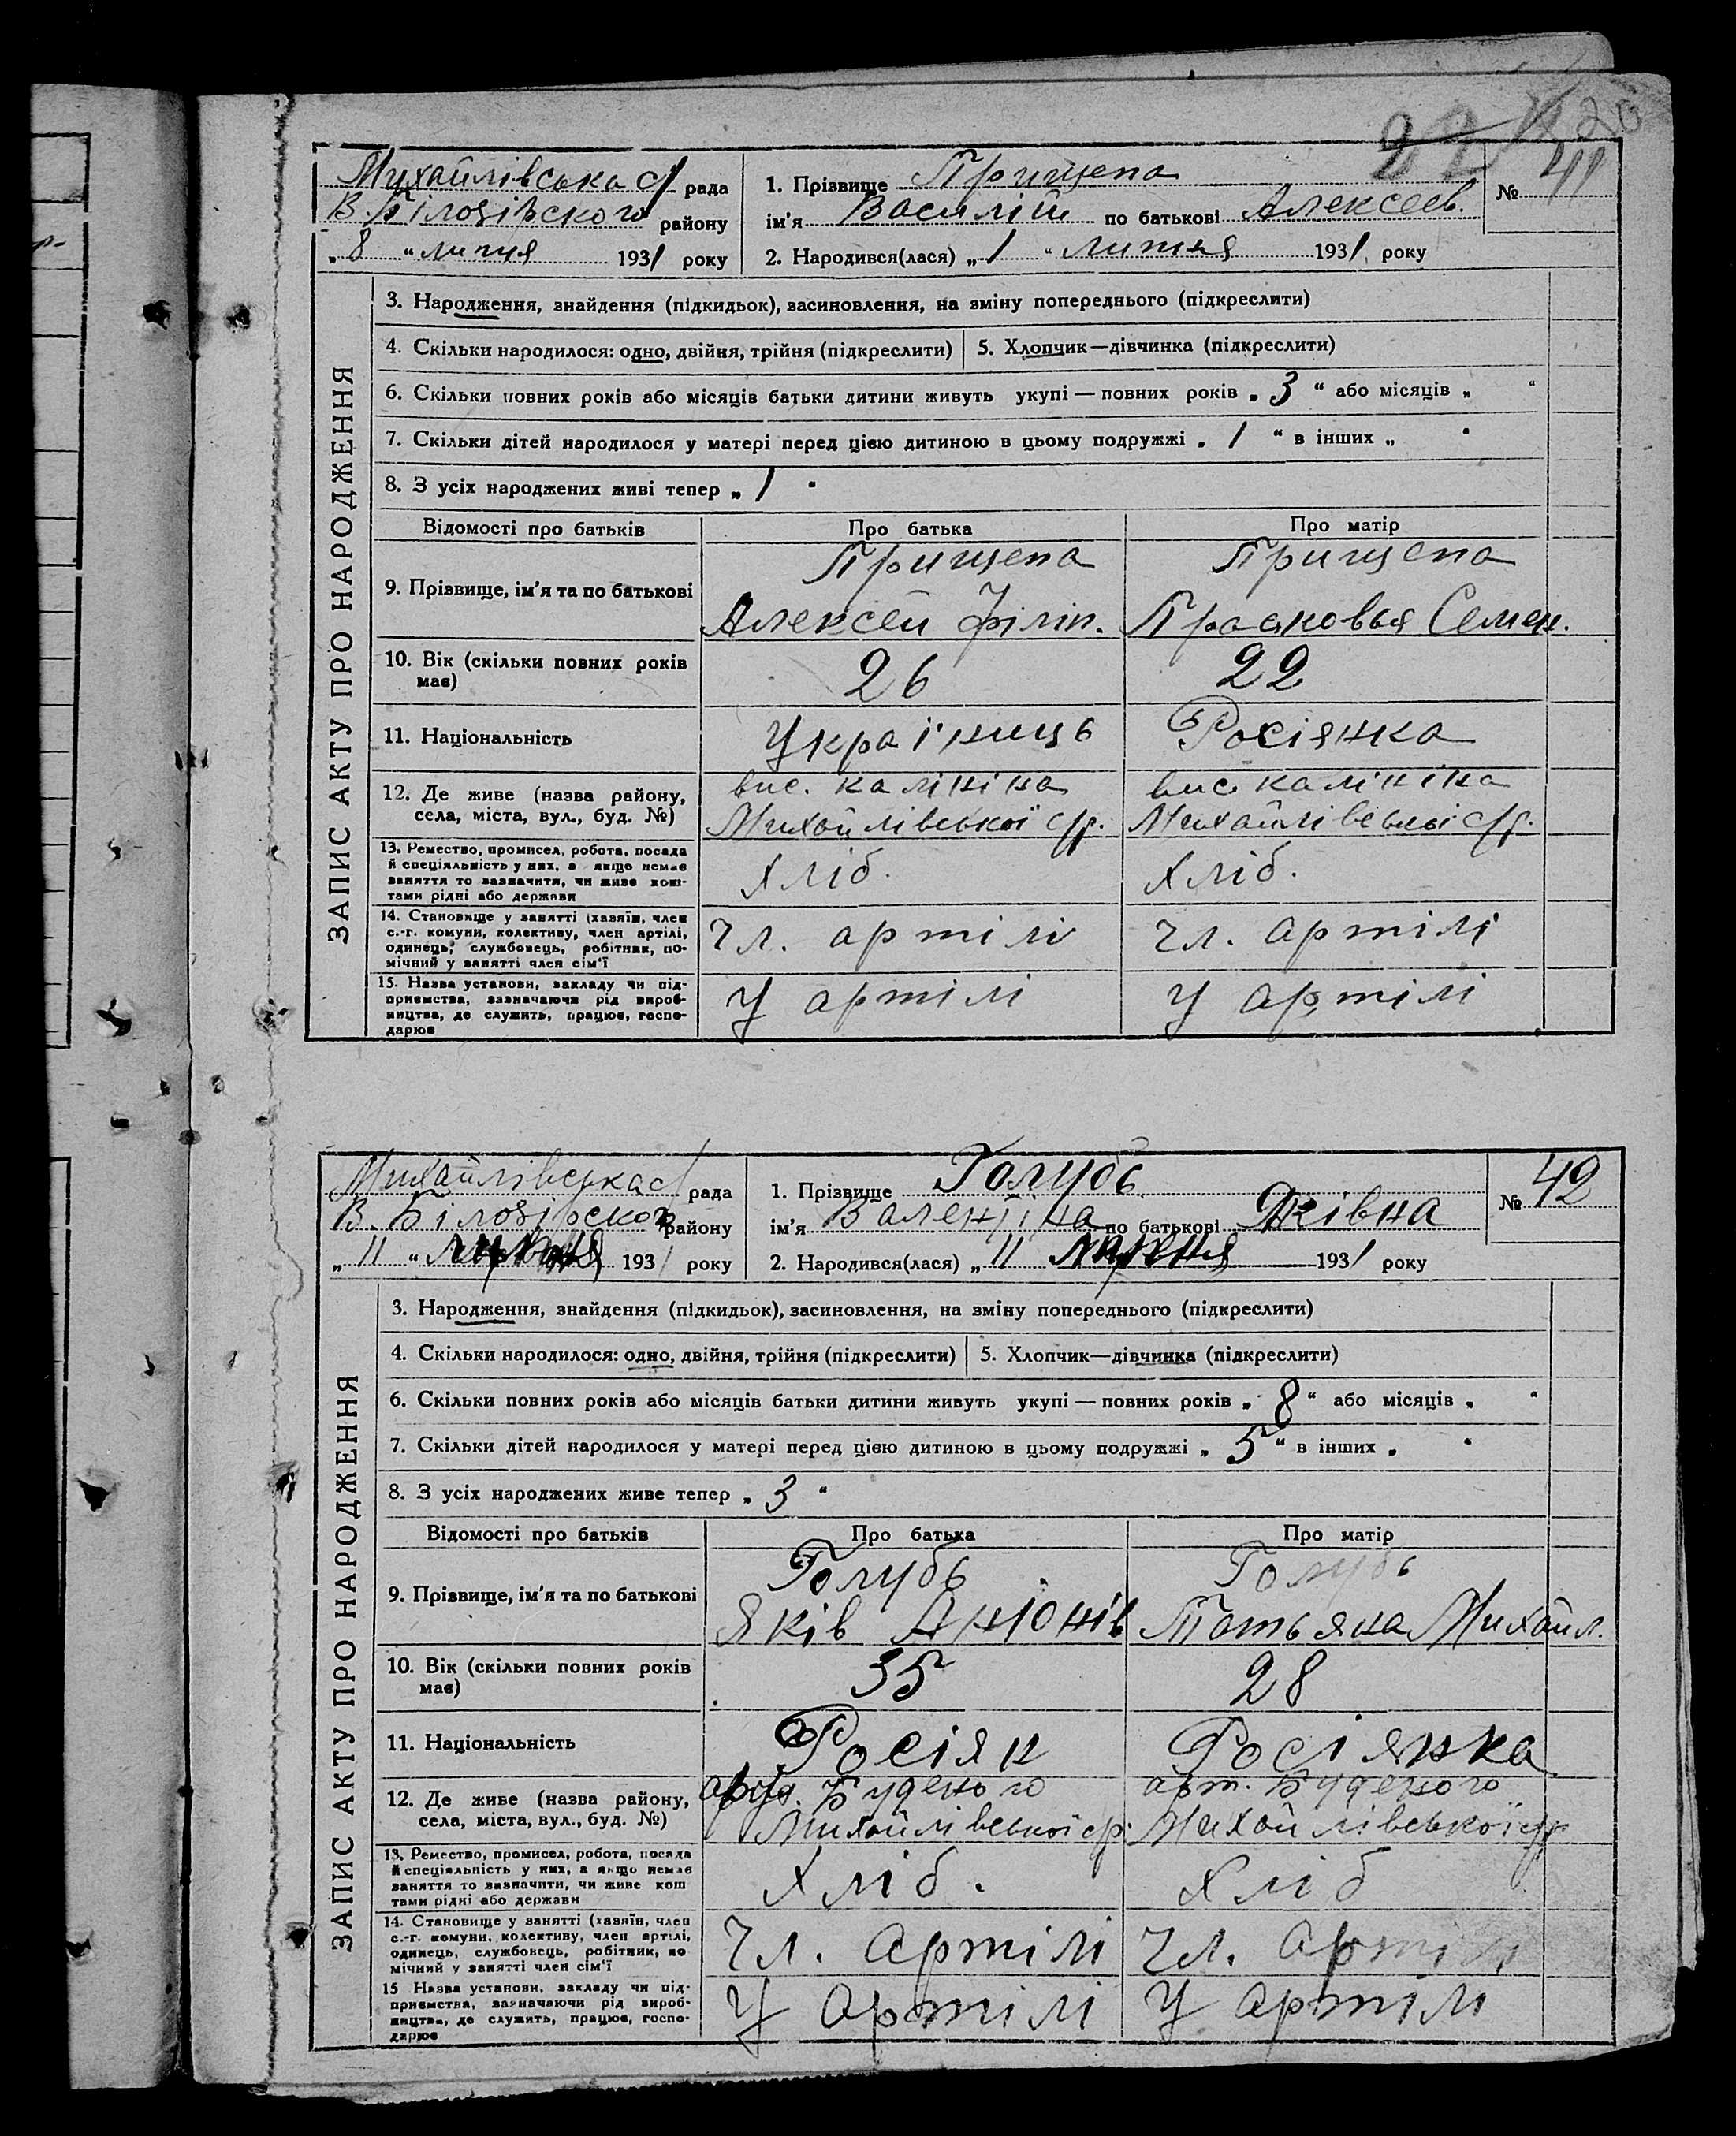 22 20
Михайлівська с/ рада
В. Білозірского району
„ 8 “ липня 1931 року
1. Прізвище Прищепа
ім'я Василій по батькові Алексеев.
2. Народився(лася) „ 1 “ липня 1931 року
№ 41
ЗАПИС АКТУ ПРО НАРОДЖЕННЯ
3. Народження, знайдення (підкидьок), засиновлення, на зміну попереднього (підкреслити)
4. Скільки народилося: одно, двійня, трійня (підкреслити) 5. Хлопчик—дівчинка (підкреслити)
6. Скільки повних років або місяців батьки дитини живуть укупі — повних років „ 3 “ або місяців „ “
7. Скільки дітей народилося у матері перед цією дитиною в цьому подружжі „ 1 “ в інших „ “
8. З усіх народжених живі тепер „ 1 “
Відомості про батьків Про батька Про матір
9. Прізвище, ім'я та по батькові
Прищепа
Алексей Філіп.
Прищепа
Прасковья Семен.
10. Вік (скільки повних років
має)
26 22
11. Національність Українець Росіянка
12. Де живе (назва району,
села, міста, вул., буд. №)
вис. калініна
Михайлівської с/р.
вис. калініна
Михайлівської с/р.
13. Ремество, промисел, робота, посада
й спеціяльність у них, а якщо немає
заняття то зазначити, чи живе кош-
тами рідні або держави
Хліб. Хліб.
14. Становище у занятті (хазяїн, член
с.-г. комуни, колективу, член артілі,
одинець, службовець, робітник, по-
мічний у занятті член сім'ї
Чл. артілі Чл. артілі
15. Назва установи, закладу чи під-
приємства, зазначаючи рід вироб-
ництва, де служить, працює, госпо-
дарює
У артілі У артілі
Михайлівська с/ рада
В. Білозірског району
„ 11 “ 1931 року
1. Прізвище Голубь
ім'я Валентіна по батькові Яківна
2. Народився(лася) „ 11 1931 року
№ 42
ЗАПИС АКТУ ПРО НАРОДЖЕННЯ
3. Народження, знайдення (підкидьок), засиновлення, на зміну попереднього (підкреслити)
4. Скільки народилося: одно, двійня, трійня (підкреслити) 5. Хлопчик—дівчинка (підкреслити)
6. Скільки повних років або місяців батьки дитини живуть укупі — повних років „ 8 “ або місяців „ “
7. Скільки дітей народилося у матері перед цією дитиною в цьому подружжі „ 5 “ в інших „ “
8. З усіх народжених живе тепер „ 3 “
Відомості про батьків Про батька Про матір
9. Прізвище, ім'я та по батькові
Голубь
Яків Антонів
Голубь
Татьяна Михайл.
10. Вік (скільки повних років
має)
35 28
11. Національність Росіян Росіянка
12. Де живе (назва району,
села, міста, вул., буд. №)
Буденого
Михайлівської с/р.
арт. Буденого
Михайлівської с/р
13. Ремество, промисел, робота, посада
й спеціяльність у них, а якщо немає
заняття то зазначити, чи живе кош
тами рідні або держави
Хліб. Хліб
14. Становище у занятті (хазяїн, член
с.-г. комуни, колективу, член артілі,
одинець, службовець, робітник, по
мічний у занятті член сім'ї
Чл. артілі Чл. артілі
15 Назва установи, закладу чи під-
приємства, зазначаючи рід вироб-
ництва, де служить, працює, госпо-
дарює
У артілі У артілі